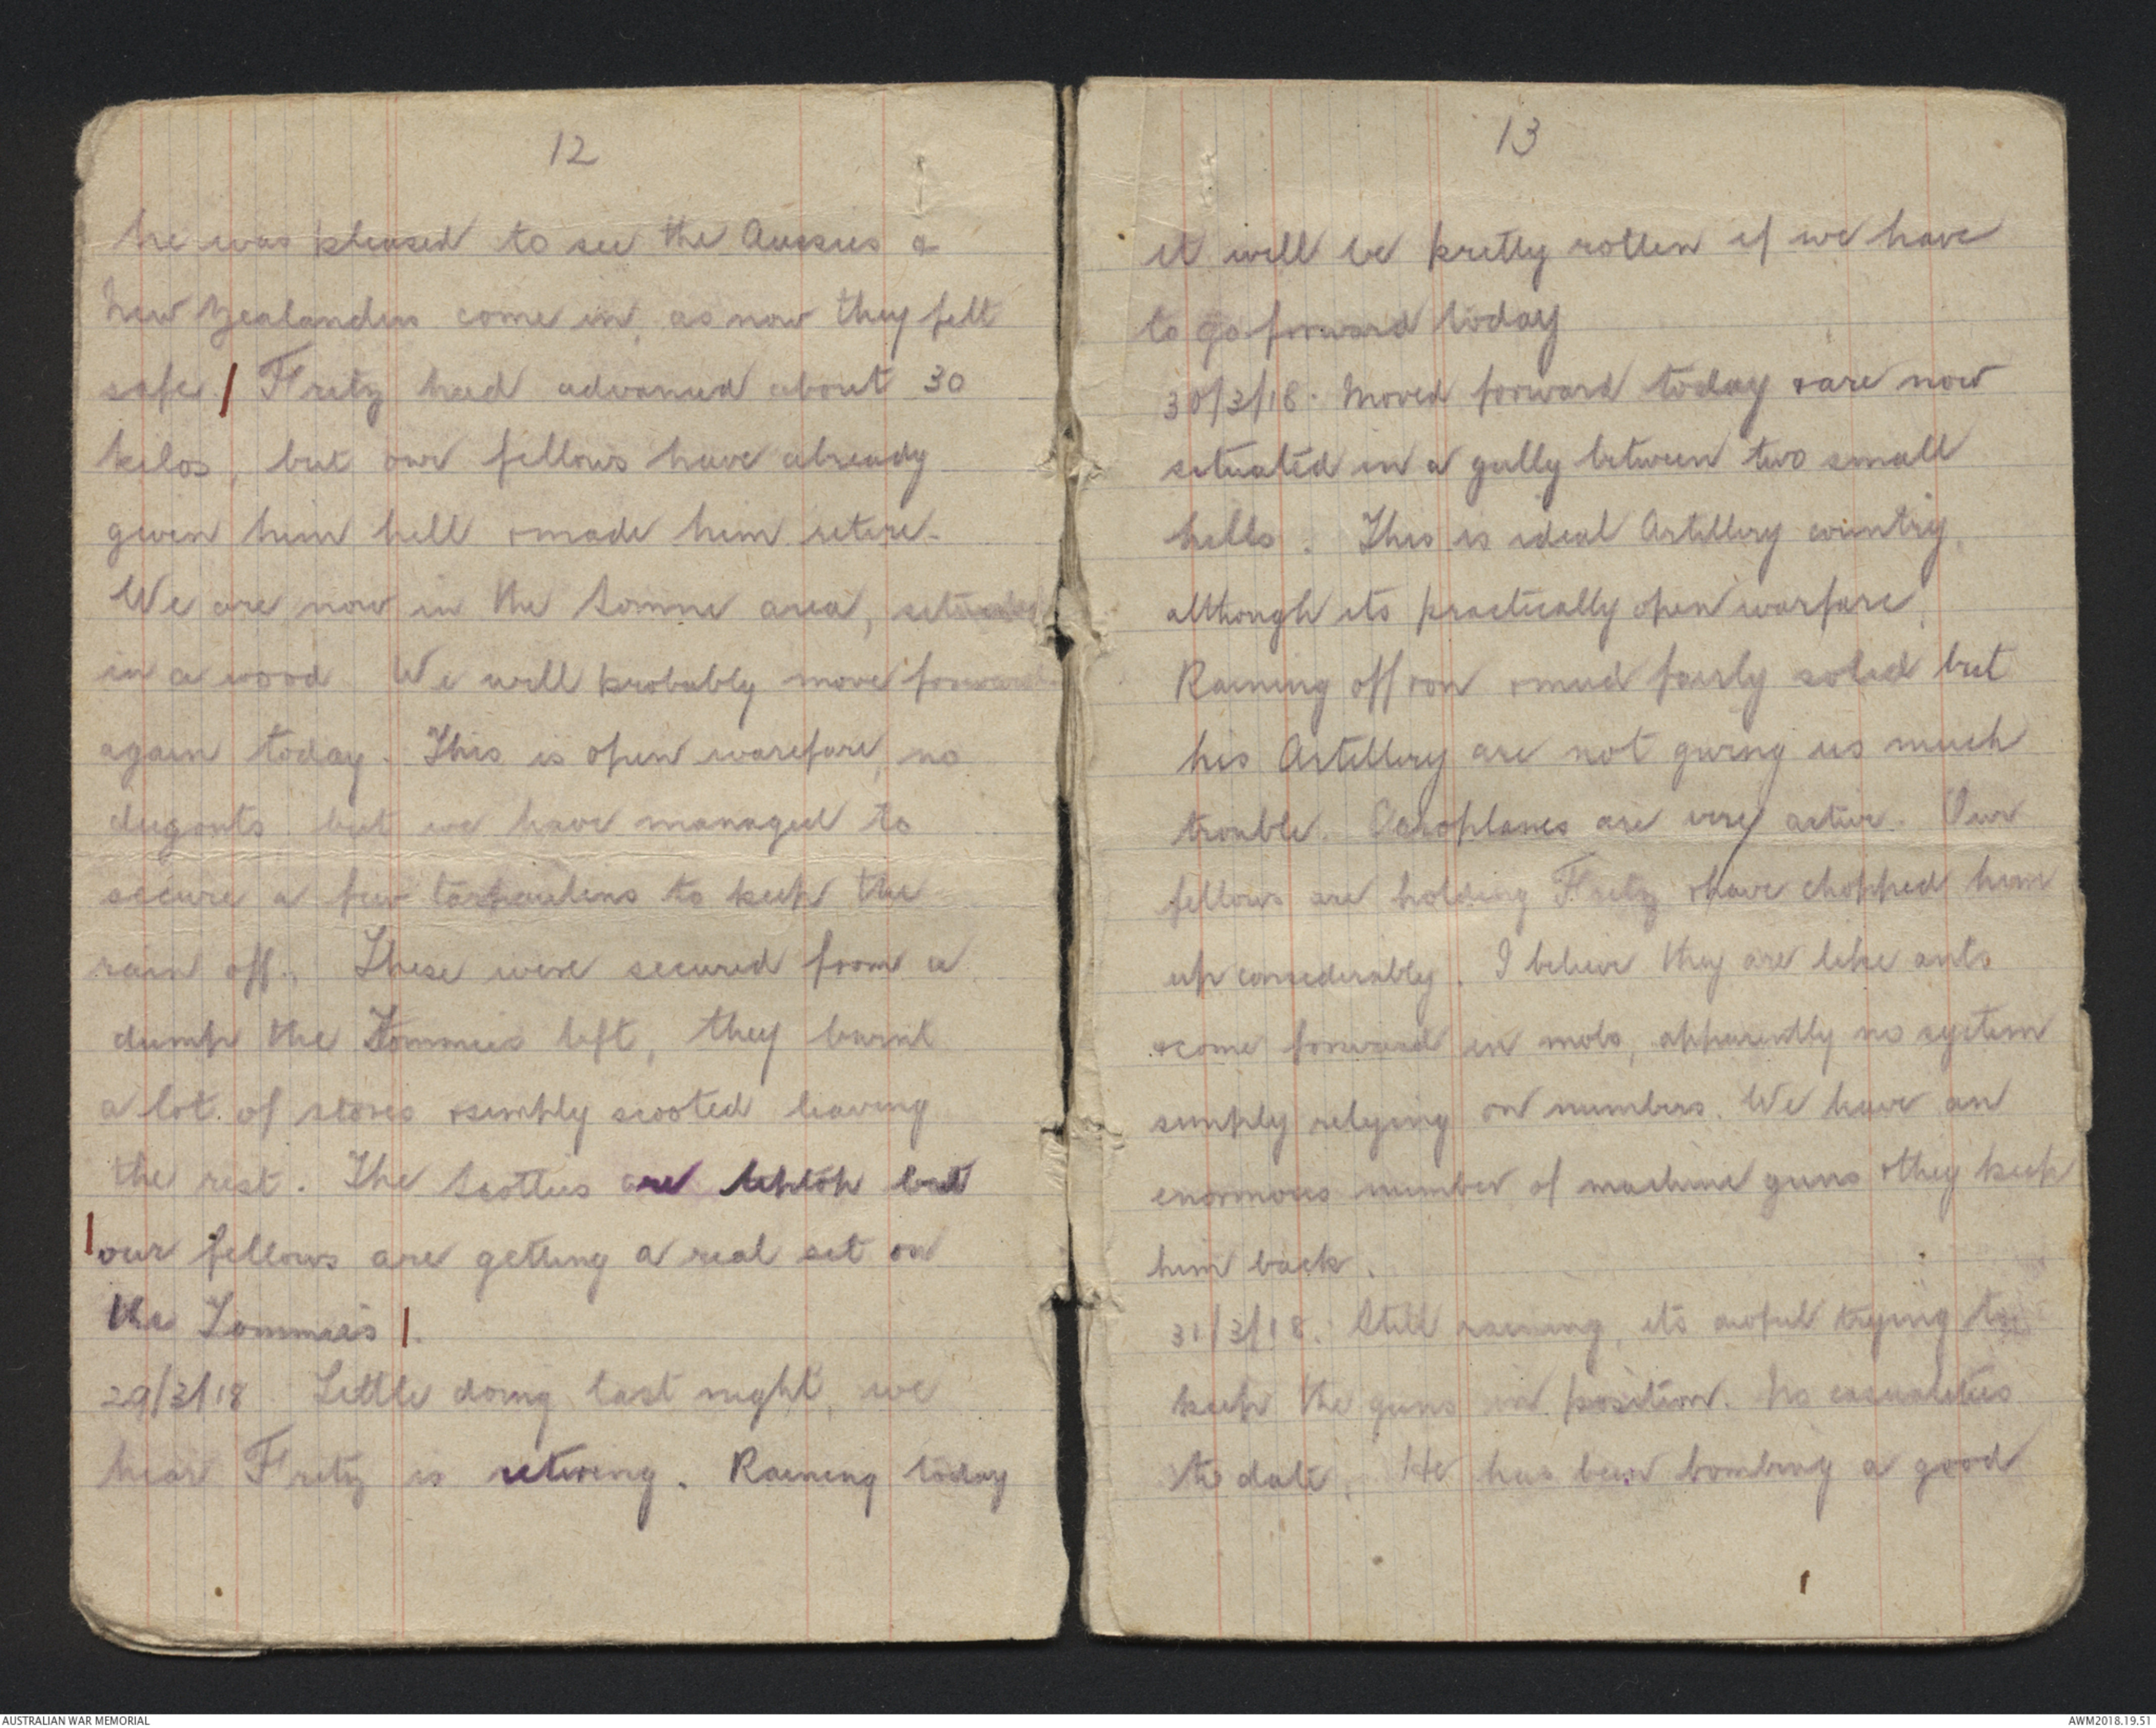 12
he was pleased to see the Aussies &
New Zealanders come in, as now they felt
safe. | Fritz had advanced about 30
kilos, but our fellows have already
given him hell & made him retire.
We are now in the Somme area, situated
in a wood We will probably move forward
again today. This is open warefare, no
dugouts but we have managed to
secure a few tarpaulens to keep the
rain off. These were secured from a
dump the Tommies left, they burnt
a lot of stores & simply scooted leaving
the rest. The Scotties are tiptop but
| our fellows are getting a real set on
the Tommies |.
29/3/18 Little doing last night, we
hear Fritz is retiring. Raining today
13
it will be pretty rotten if we have
to go forward today
30/3/18. Moved forward today & are now
situated in a gully between two small
hills. This is ideal Artillery country,
although its practically open warfare,
Raining off & on & mud fairly solid but
his Artillery are not giving us much
trouble. Aeroplanes are very active. Our
fellows are holding Fritz & have chopped him
up considerably. I believe they are like ants
& come forward in mobs, apparently no system
simply relying on numbers. We have an
enormous number of machine guns & they keep
him back.
31/3/18. Still raining, its awful trying to
keep the guns in position. No casualities
to date. He has been bombing a good
AUSTRALIAN WAR MEMORIAL
AWM2018.19.51